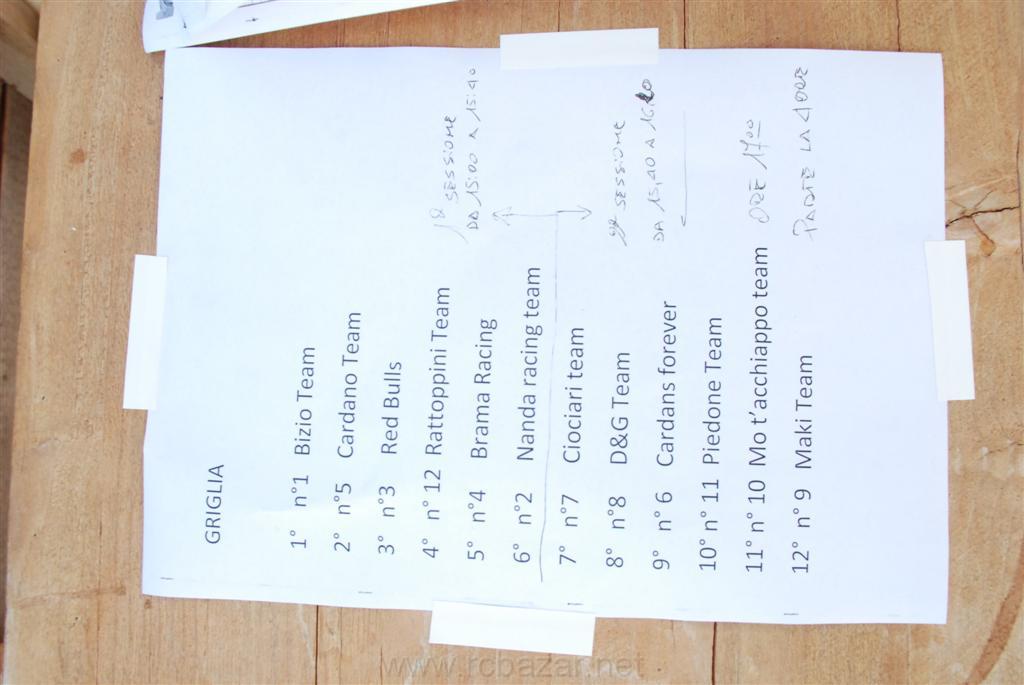 GRIGLIA
1° n°1 Bizio Team
2° n°5 Cardano Team
3° n°3 Red Bulls
4° n° 12 Rattoppini Team
5° n°4 Brama Racing
6° n°2 Nanda racing team
7° n°7 Ciociari team
8° n°8 D&G Team
9° n° 6 Cardans forever
10° n° 11 Piedone Team
11° n° 10 Mo t'acchiappo team
12° n° 9 Maki Team
1ª SESSIONE
DA 15:00 A 15:40
2ª SESSIONE
DA 15,40 A 16:20
ORE 1700
PARTE LA 4 ORE
www.rcbazar.net